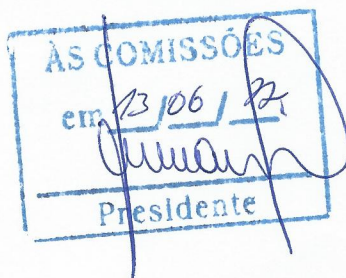 ÀS COMISSÕES
em 13/06/22
Presidente